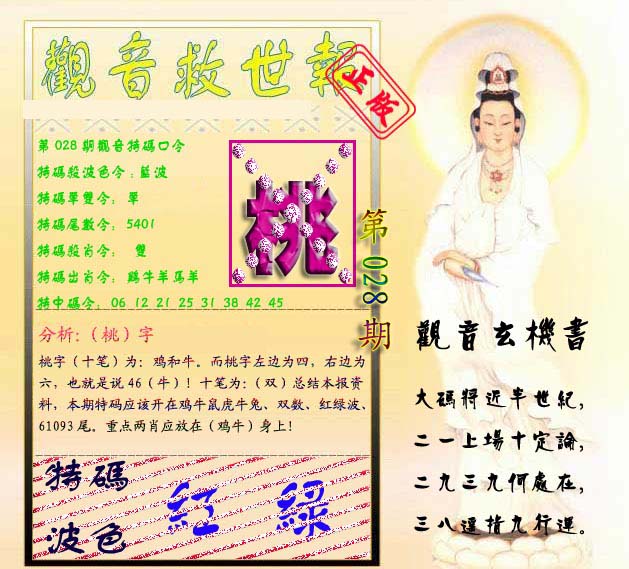 觀音救世報
正版
第028期觀音特碼口令
特碼殺波色令:藍波
特碼單雙令: 單
特碼尾數令: 5401
特碼殺肖令: 雙
特碼出肖令: 鷄牛羊馬羊
特中碼令: 06 12 21 25 31 38 42 45
桃
第028期
分析:（桃）字
桃字（十笔）为：鸡和牛。而桃字左边为四，右边为
六，也就是说46（牛）！十笔为：（双）总结本报资
料，本期特码应该开在鸡牛鼠虎牛兔、双数、红绿波、
61093尾。重点两肖应放在（鸡牛）身上！
特碼
波色
紅 綠
觀音玄機書
大碼將近半世紀，
二一上場十定論，
二九三九何處在，
三八還指九行運。